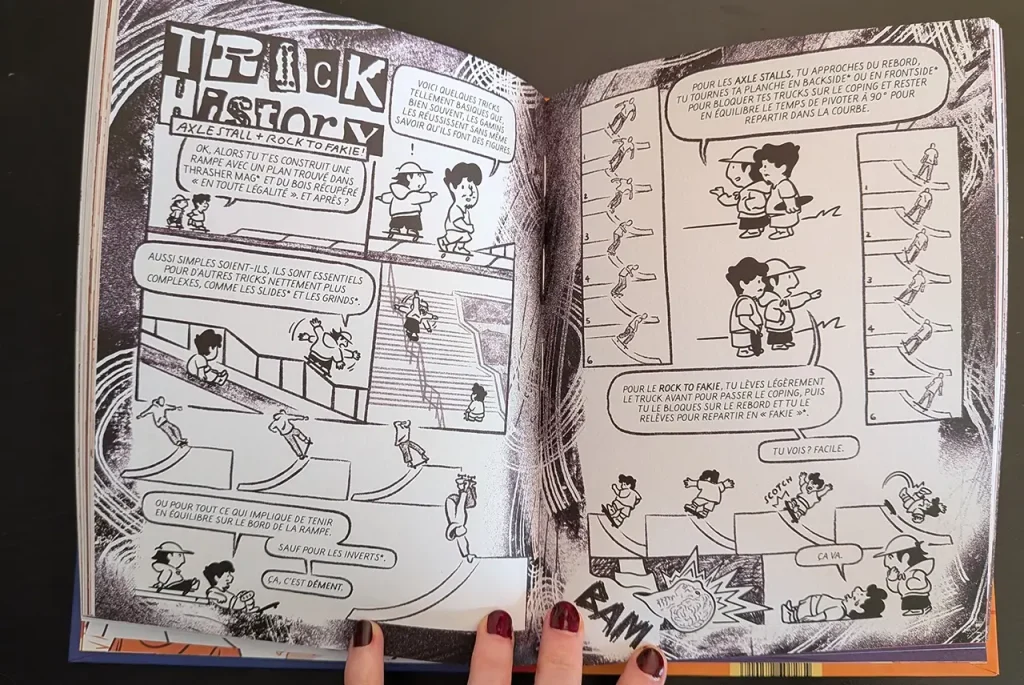 TRICK
HISTORY
AXLE STALL + ROCK TO FAKIE!
OK, ALORS TU T'ES CONSTRUIT UNE
RAMPE AVEC UN PLAN TROUVÉ DANS
THRASHER MAG* ET DU BOIS RÉCUPÉRÉ
« EN TOUTE LÉGALITÉ ». ET APRÈS ?
!
VOICI QUELQUES TRICKS
TELLEMENT BASIQUES QUE,
BIEN SOUVENT, LES GAMINS
LES RÉUSSISSENT SANS MÊME
SAVOIR QU'ILS FONT DES FIGURES.
AUSSI SIMPLES SOIENT-ILS, ILS SONT ESSENTIELS
POUR D'AUTRES TRICKS NETTEMENT PLUS
COMPLEXES, COMME LES SLIDES* ET LES GRINDS*.
OU POUR TOUT CE QUI IMPLIQUE DE TENIR
EN ÉQUILIBRE SUR LE BORD DE LA RAMPE.
SAUF POUR LES INVERTS*.
ÇA, C'EST DÉMENT.
POUR LES AXLE STALLS, TU APPROCHES DU REBORD,
TU TOURNES TA PLANCHE EN BACKSIDE* OU EN FRONTSIDE*
POUR BLOQUER TES TRUCKS SUR LE COPING ET RESTER
EN ÉQUILIBRE LE TEMPS DE PIVOTER À 90° POUR
REPARTIR DANS LA COURBE.
1
2
3
4
5
6
1
2
3
4
5
6
POUR LE ROCK TO FAKIE, TU LÈVES LÉGÈREMENT
LE TRUCK AVANT POUR PASSER LE COPING, PUIS
TU LE BLOQUES SUR LE REBORD ET TU LE
RELÈVES POUR REPARTIR EN « FAKIE »*.
TU VOIS ? FACILE.
SCOTCH
BAM
ÇA VA.